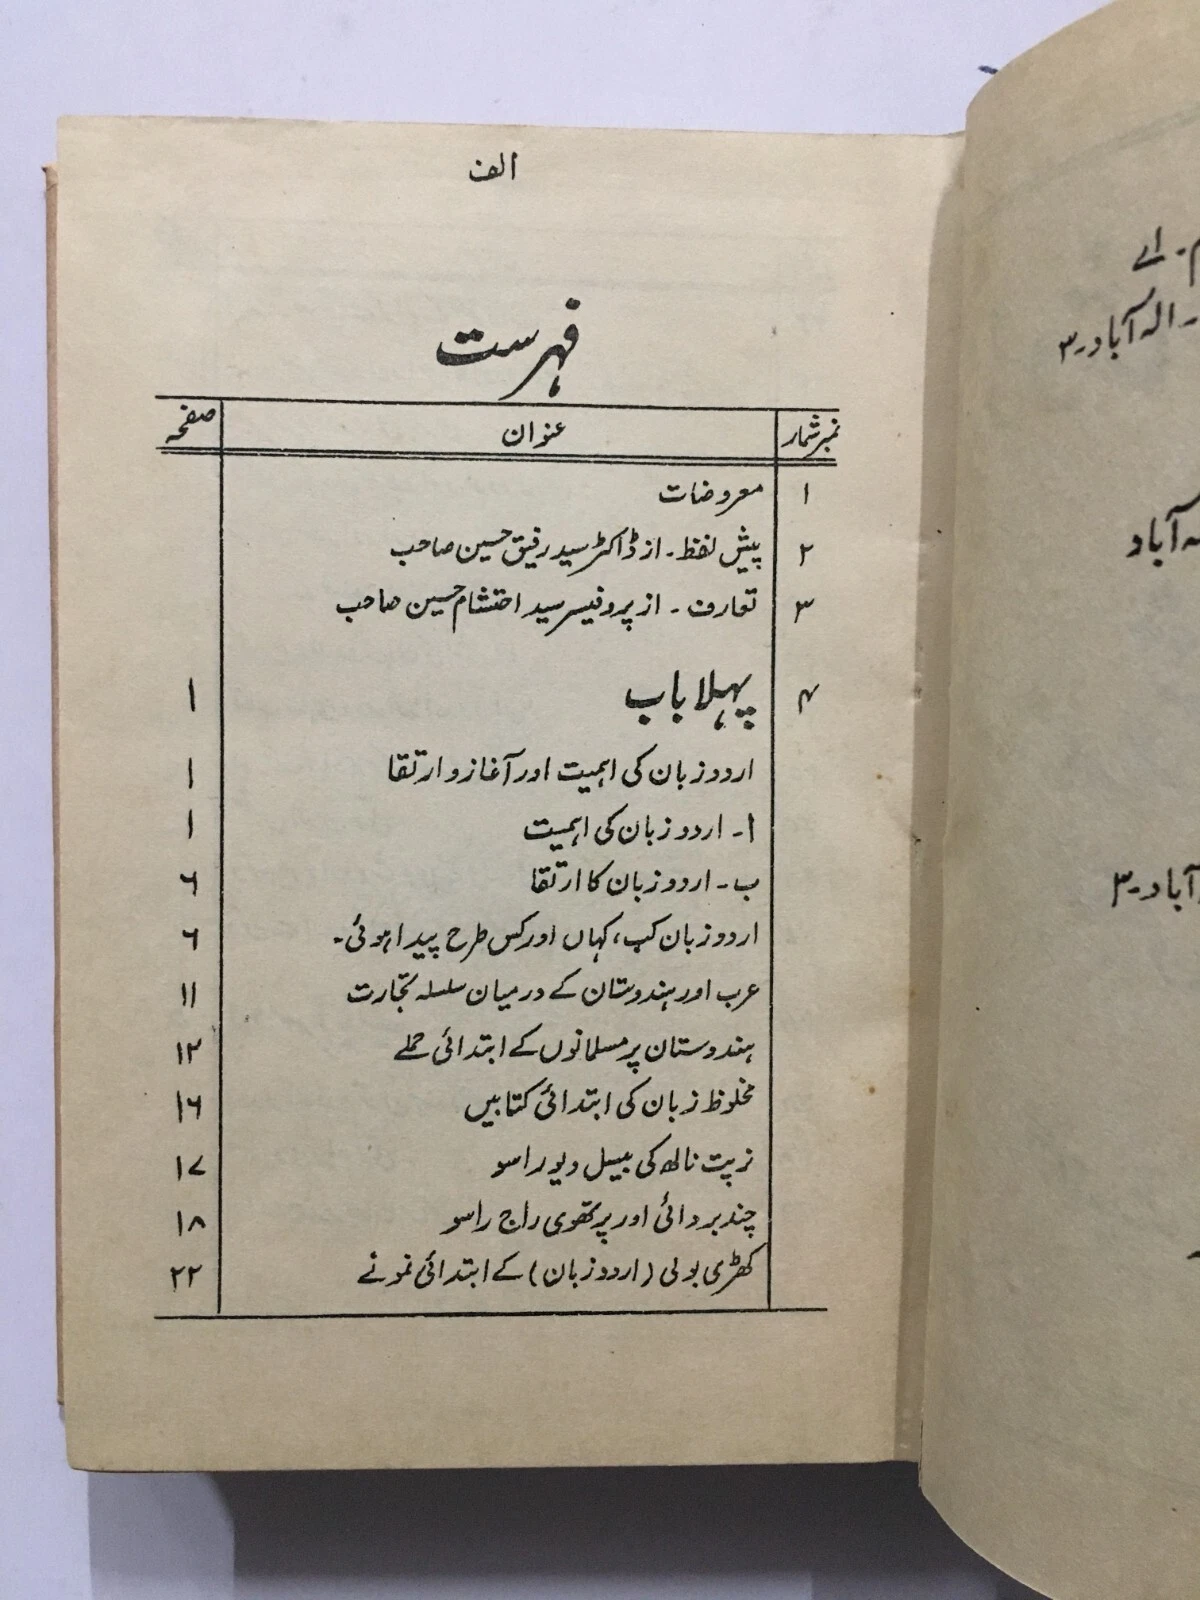 الف
فہرست
نمبر شمار عنوان صفحہ
۱ معروضات
۲ پیش لفظ ۔ از ڈاکٹر سید رفیق حسین صاحب
۳ تعارف ۔ از پروفیسر سید احتشام حسین صاحب
۴ پہلا باب ۱
اردو زبان کی اہمیت اور آغاز و ارتقا ۱
ا۔ اردو زبان کی اہمیت ۱
ب۔ اردو زبان کا ارتقا ۶
اردو زبان کب، کہاں اور کس طرح پیدا ہوئی۔ ۶
عرب اور ہندوستان کے درمیان سلسلہ تجارت ۱۱
ہندوستان پر مسلمانوں کے ابتدائی حملے ۱۲
مخلوط زبان کی ابتدائی کتابیں ۱۶
نرپت نالھ کی بیسل دیو راسو ۱۷
چند بردائی اور پرتھوی راج راسو ۱۸
کھڑی بولی (اردو زبان) کے ابتدائی نمونے ۲۲
م۔ اے
۔ الہ آباد۔۳
آباد
آباد۔۳